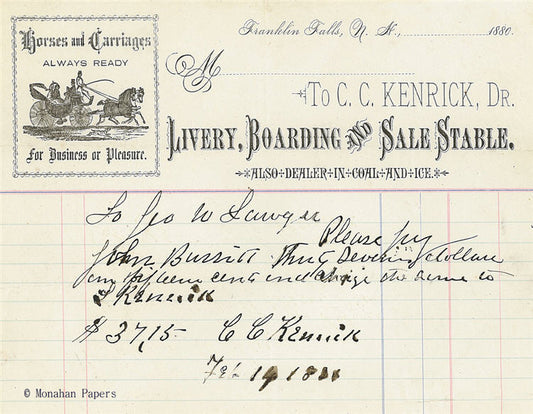 Horses and Carriages
ALWAYS READY
For Business or Pleasure.
Franklin Falls, N. H., 1880.
M
To C. C. KENRICK, Dr.
LIVERY, BOARDING AND SALE STABLE.
ALSO DEALER IN COAL AND ICE.
To Geo W Sawyer
Please pay
John Dollars
fifteen cent and charge the same to
Kenrick
$37,15 C C Kenrick
Feb 19
© Monahan Papers